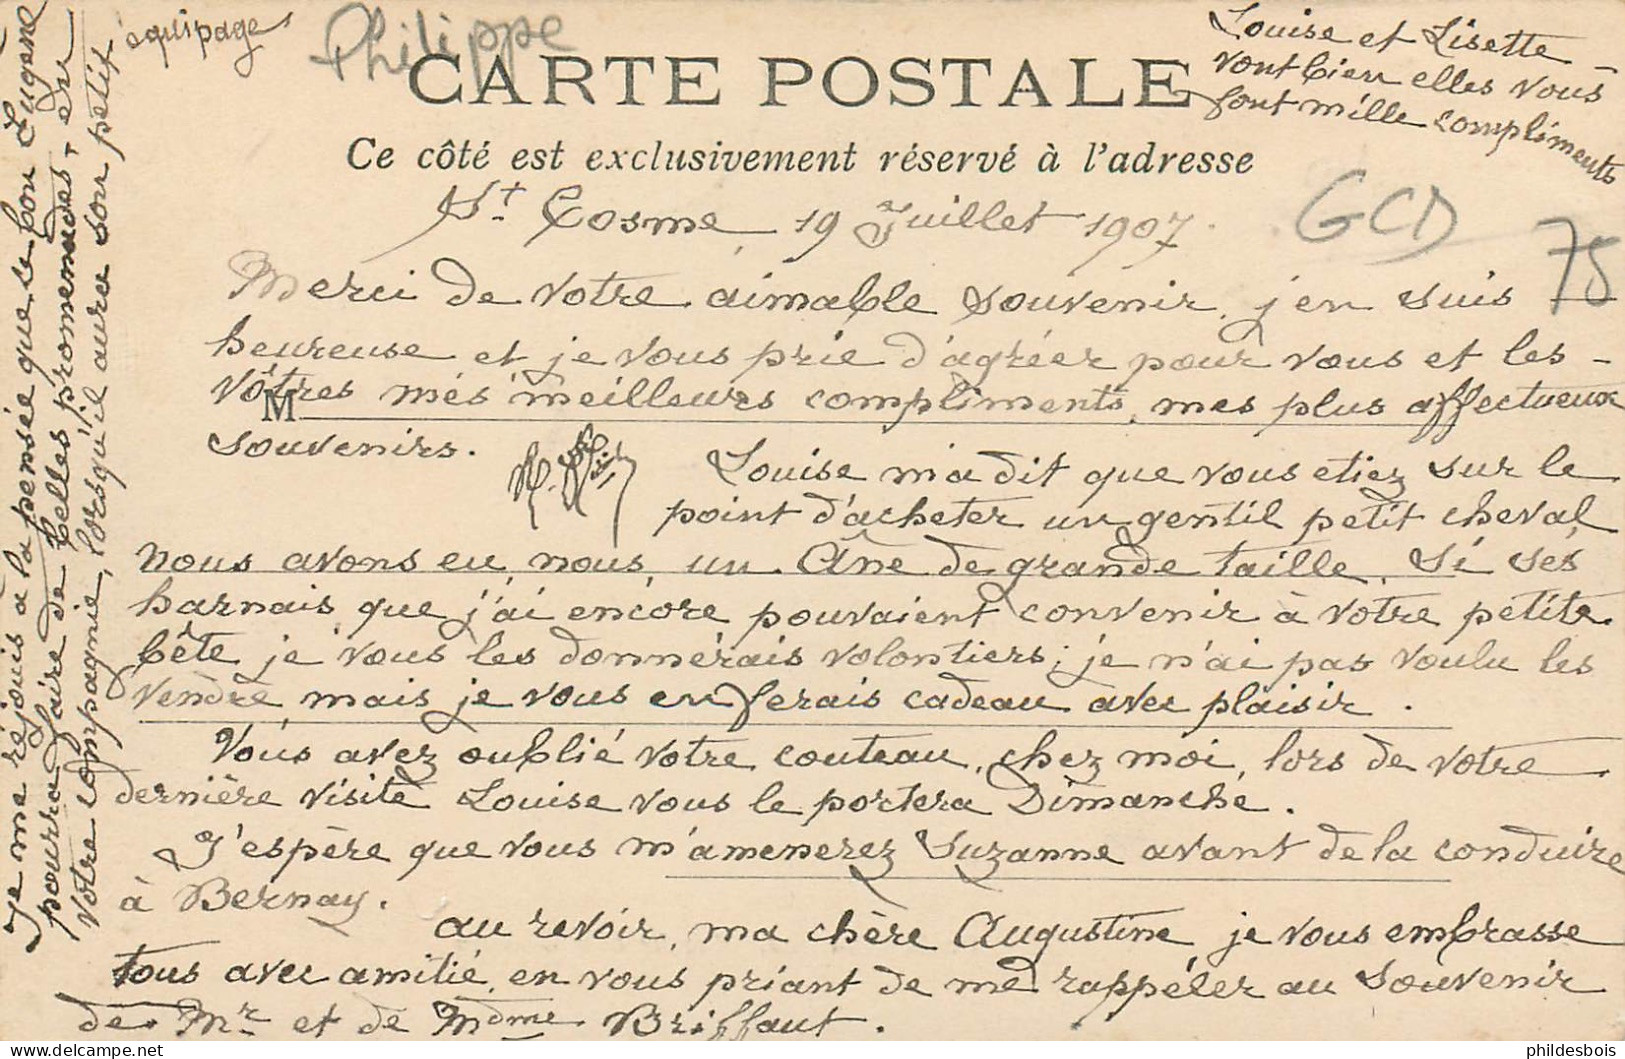 Philippe
CARTE POSTALE
Ce côté est exclusivement réservé à l'adresse
St Cosme, 19 Juillet 1907.
GCD
75
Merci de votre aimable souvenir, j'en suis
heureuse et je vous prie d'agréer pour vous et les -
vôtres mes meilleurs compliments, mes plus affectueux
M
souvenirs.
Louise m'a dit que vous etiez sur le
point d'acheter un gentil petit cheval
nous avons eu, nous, un Âne de grande taille. Si ses
harnais que j'ai encore pouvaient convenir à votre petite
bête je vous les donnerais volontiers; je n'ai pas voulu les
vendre mais je vous en ferais cadeau avec plaisir.
Vous avez oublié votre couteau, chez moi, lors de votre
dernière visite Louise vous le portera Dimanche.
J'espère que vous m'amenerez Suzanne avant de la conduire
à Bernay.
au revoir, ma chère Augustine je vous embrasse
tous avec amitié, en vous priant de me rappeler au Souvenir
de Mr et de Mdme Briffaut.
Je me réjouis à la pensée que le bon Eugene
pourra faire de belles promenades, en
votre compagnie, lorsqu'il aura son petit
équipage
Louise et Lisette -
vont bien elles vous
font mille compliments
phildesbois